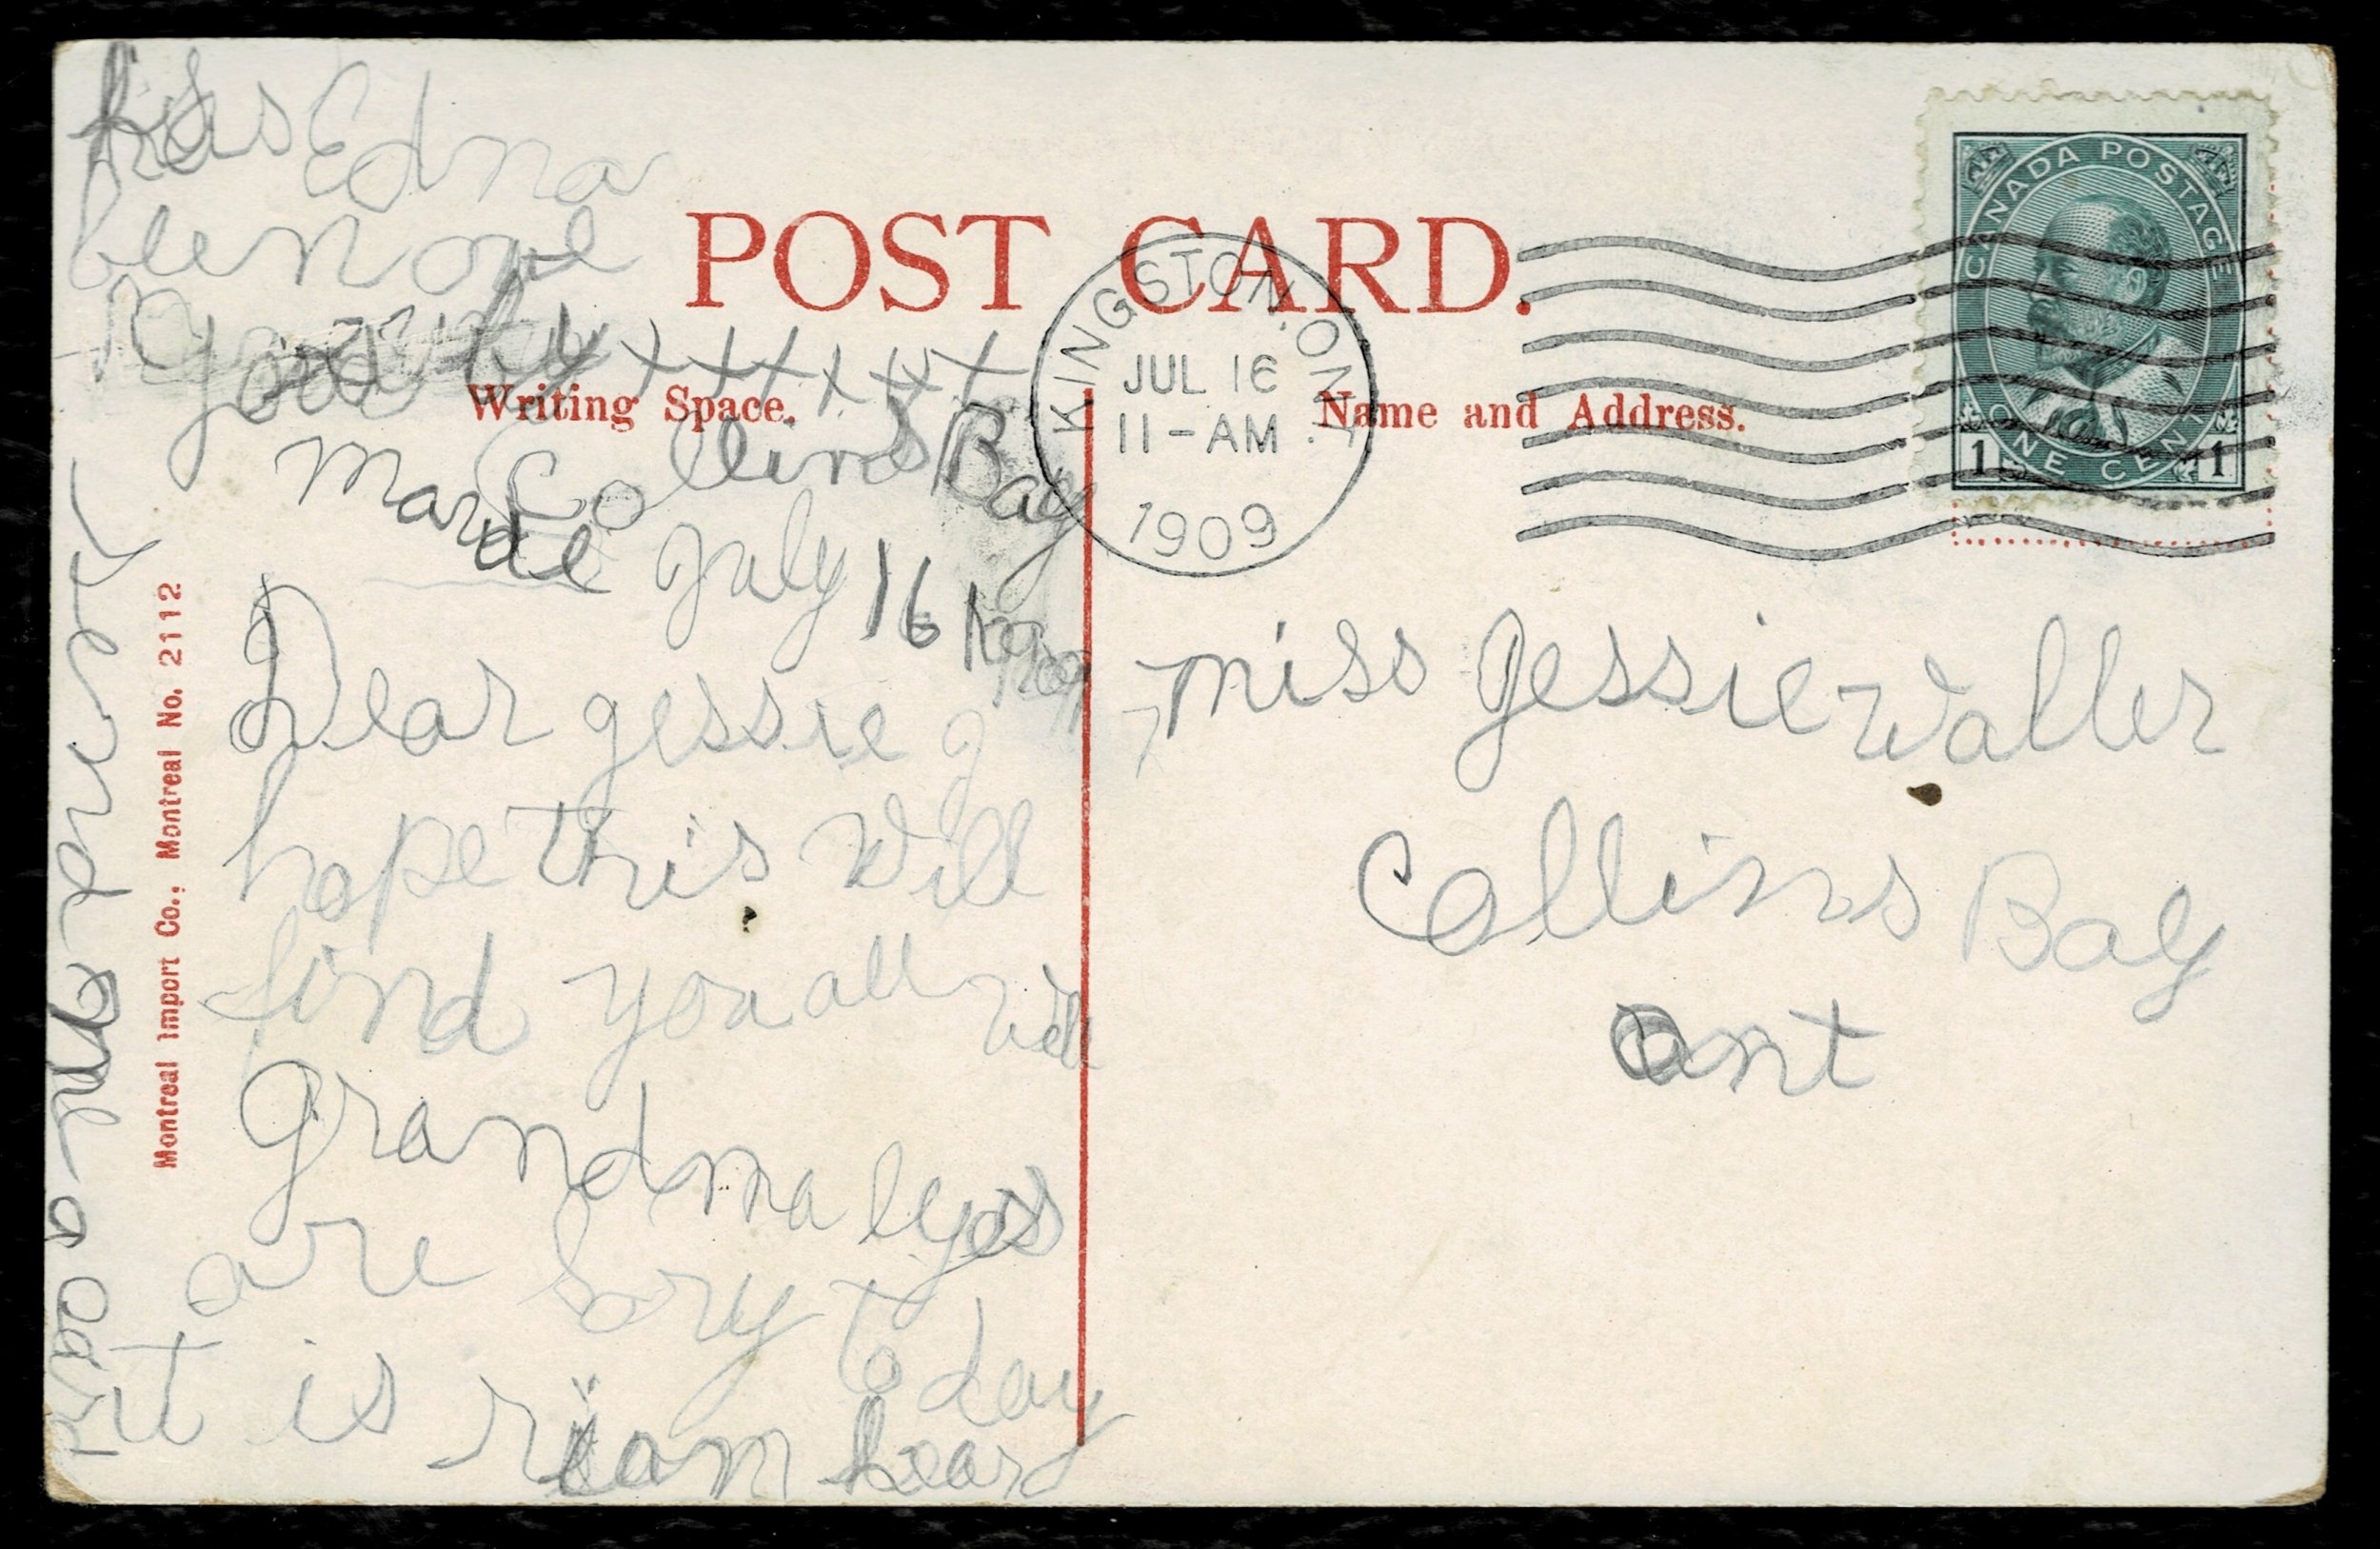 kiss Edna
been one
good by x x x x x x x
Marue
POST CARD.
Writing Space.
Name and Address.
KINGSTON, ONT.
JUL 16
11-AM
1909
CANADA POSTAGE
ONE CENT
1 1
Collins Bay
July 16
Dear Jessie I
hope this will
find you all well
Grandma eyes
are sory to day
it is rian heard
Send me a card
Montreal Import Co., Montreal No. 2112
Miss Jessie Waller
Collins Bay
Ont